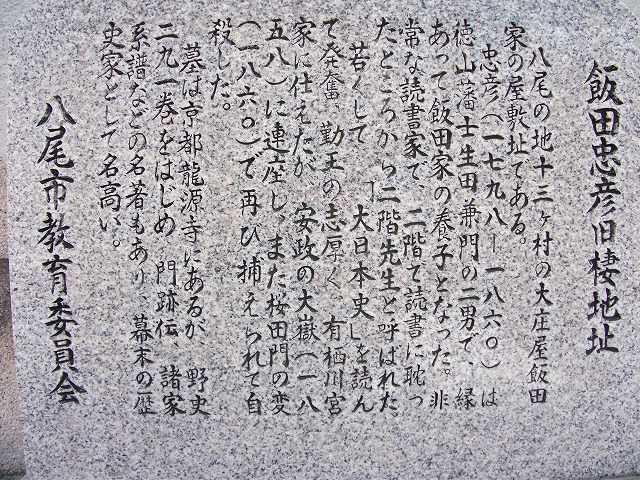 飯田忠彦旧棲地址
八尾の地十三ヶ村の大庄屋飯田
家の屋敷址である。
忠彦(一七九八ー一八六〇)は
徳山藩士生田兼門の二男で、縁
あって飯田家の養子となった。非
常な読書家で、二階で読書に耽っ
たところから二階先生と呼ばれた。
若くして「大日本史」を読ん
で発奮、勤王の志厚く、有栖川宮
家に仕えたが、安政の大嶽(一八
五八)に連座し、また桜田門の変
(一八六〇)で再び捕えられて自
殺した。
墓は京都龍源寺にあるが、野史
二九一巻をはじめ、門跡伝、諸家
系譜などの名著もあり、幕末の歴
史家として名高い。
八尾市教育委員会